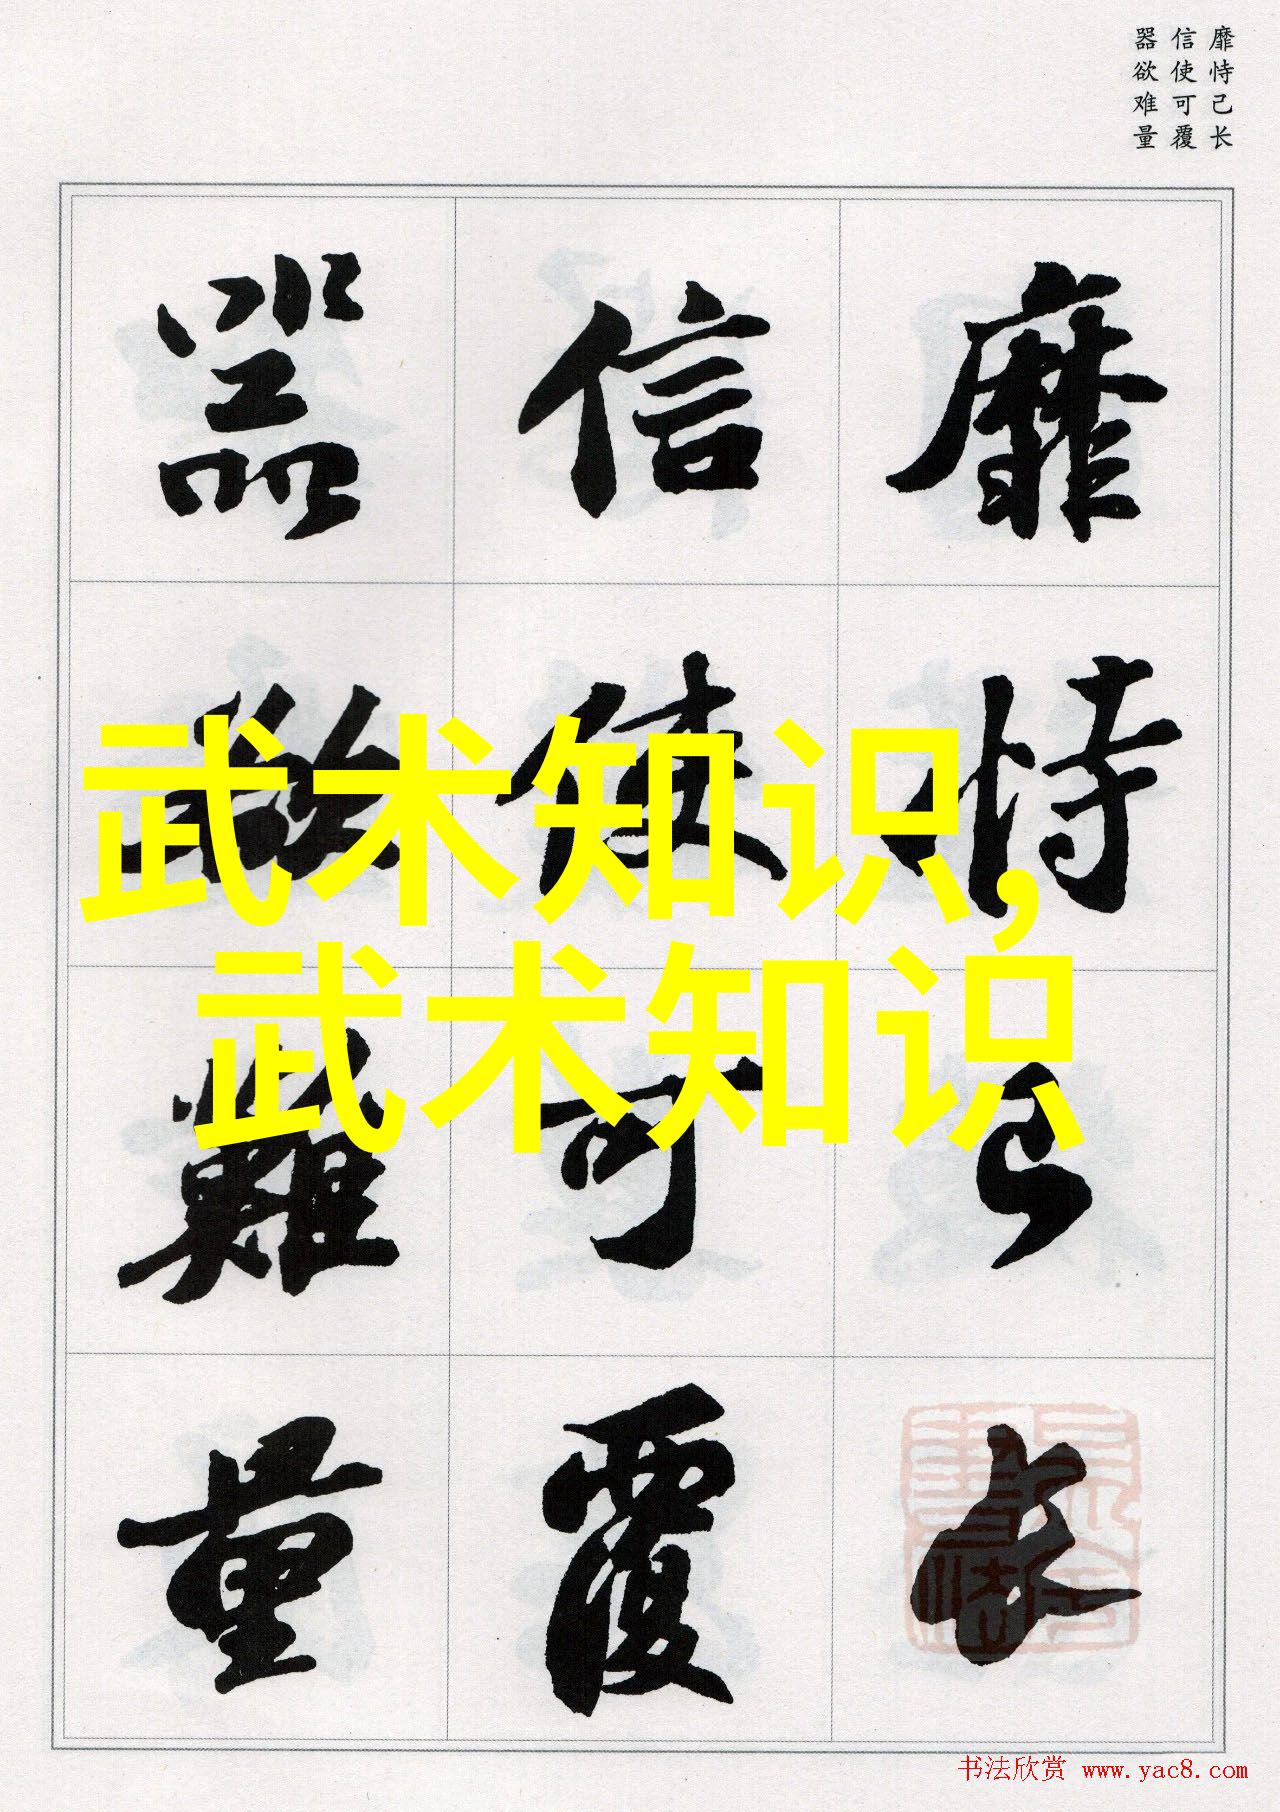 靡恃己长
信使可覆
器欲难量
靡恃己長
信使可覆
器欲難量
武术知识,
武术知识
书法欣赏 www.yac8.com